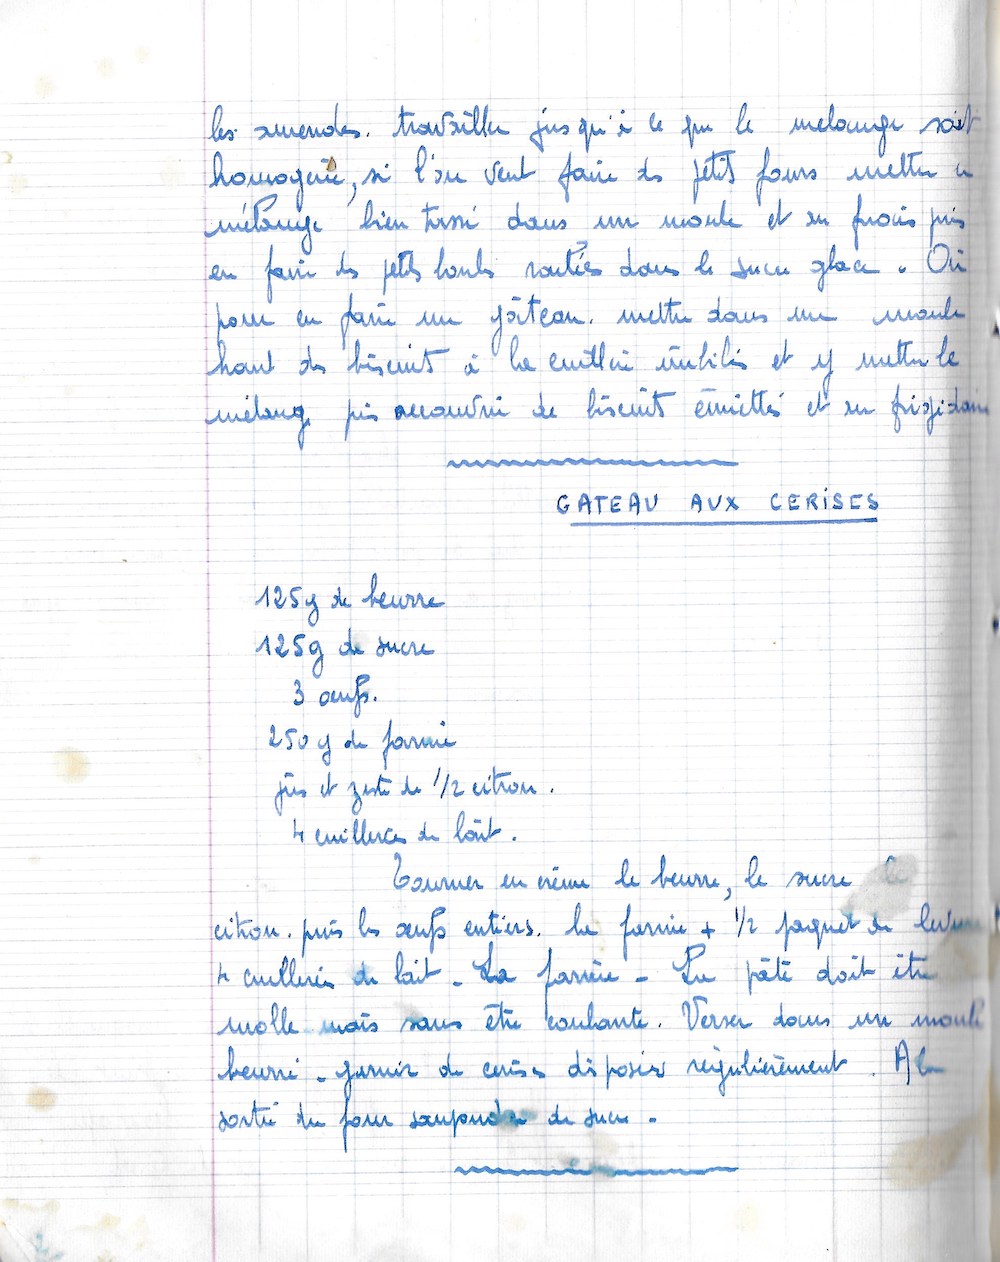 les amendes. travailler jusqu'à ce que le mélange soit
homogène, si l'on veut faire des petits fours mettre ce
mélange bien tassé dans un moule et au frais puis
en faire des petites boules roulées dans le sucre glace. Ou
pour en faire un gâteau. mettre dans un moule
haut des biscuits à la cuillère imbibés et y mettre le
mélange puis recouvrir de biscuits émiettés et au frigidaire
GATEAU AUX CERISES
125g de beurre
125g de sucre
3 œufs.
250 g de farine
jus et zeste de 1/2 citron.
4 cuillerées de lait.
Tourner en crème le beurre, le sucre le
citron. puis les œufs entiers. la farine + 1/2 paquet de levure
4 cuillerées de lait - La farine - La pâte doit être
molle mais sans être coulante. Verser dans un moule
beurré - garnir de cerises disposées régulièrement. A la
sortie du four saupoudrer de sucre -